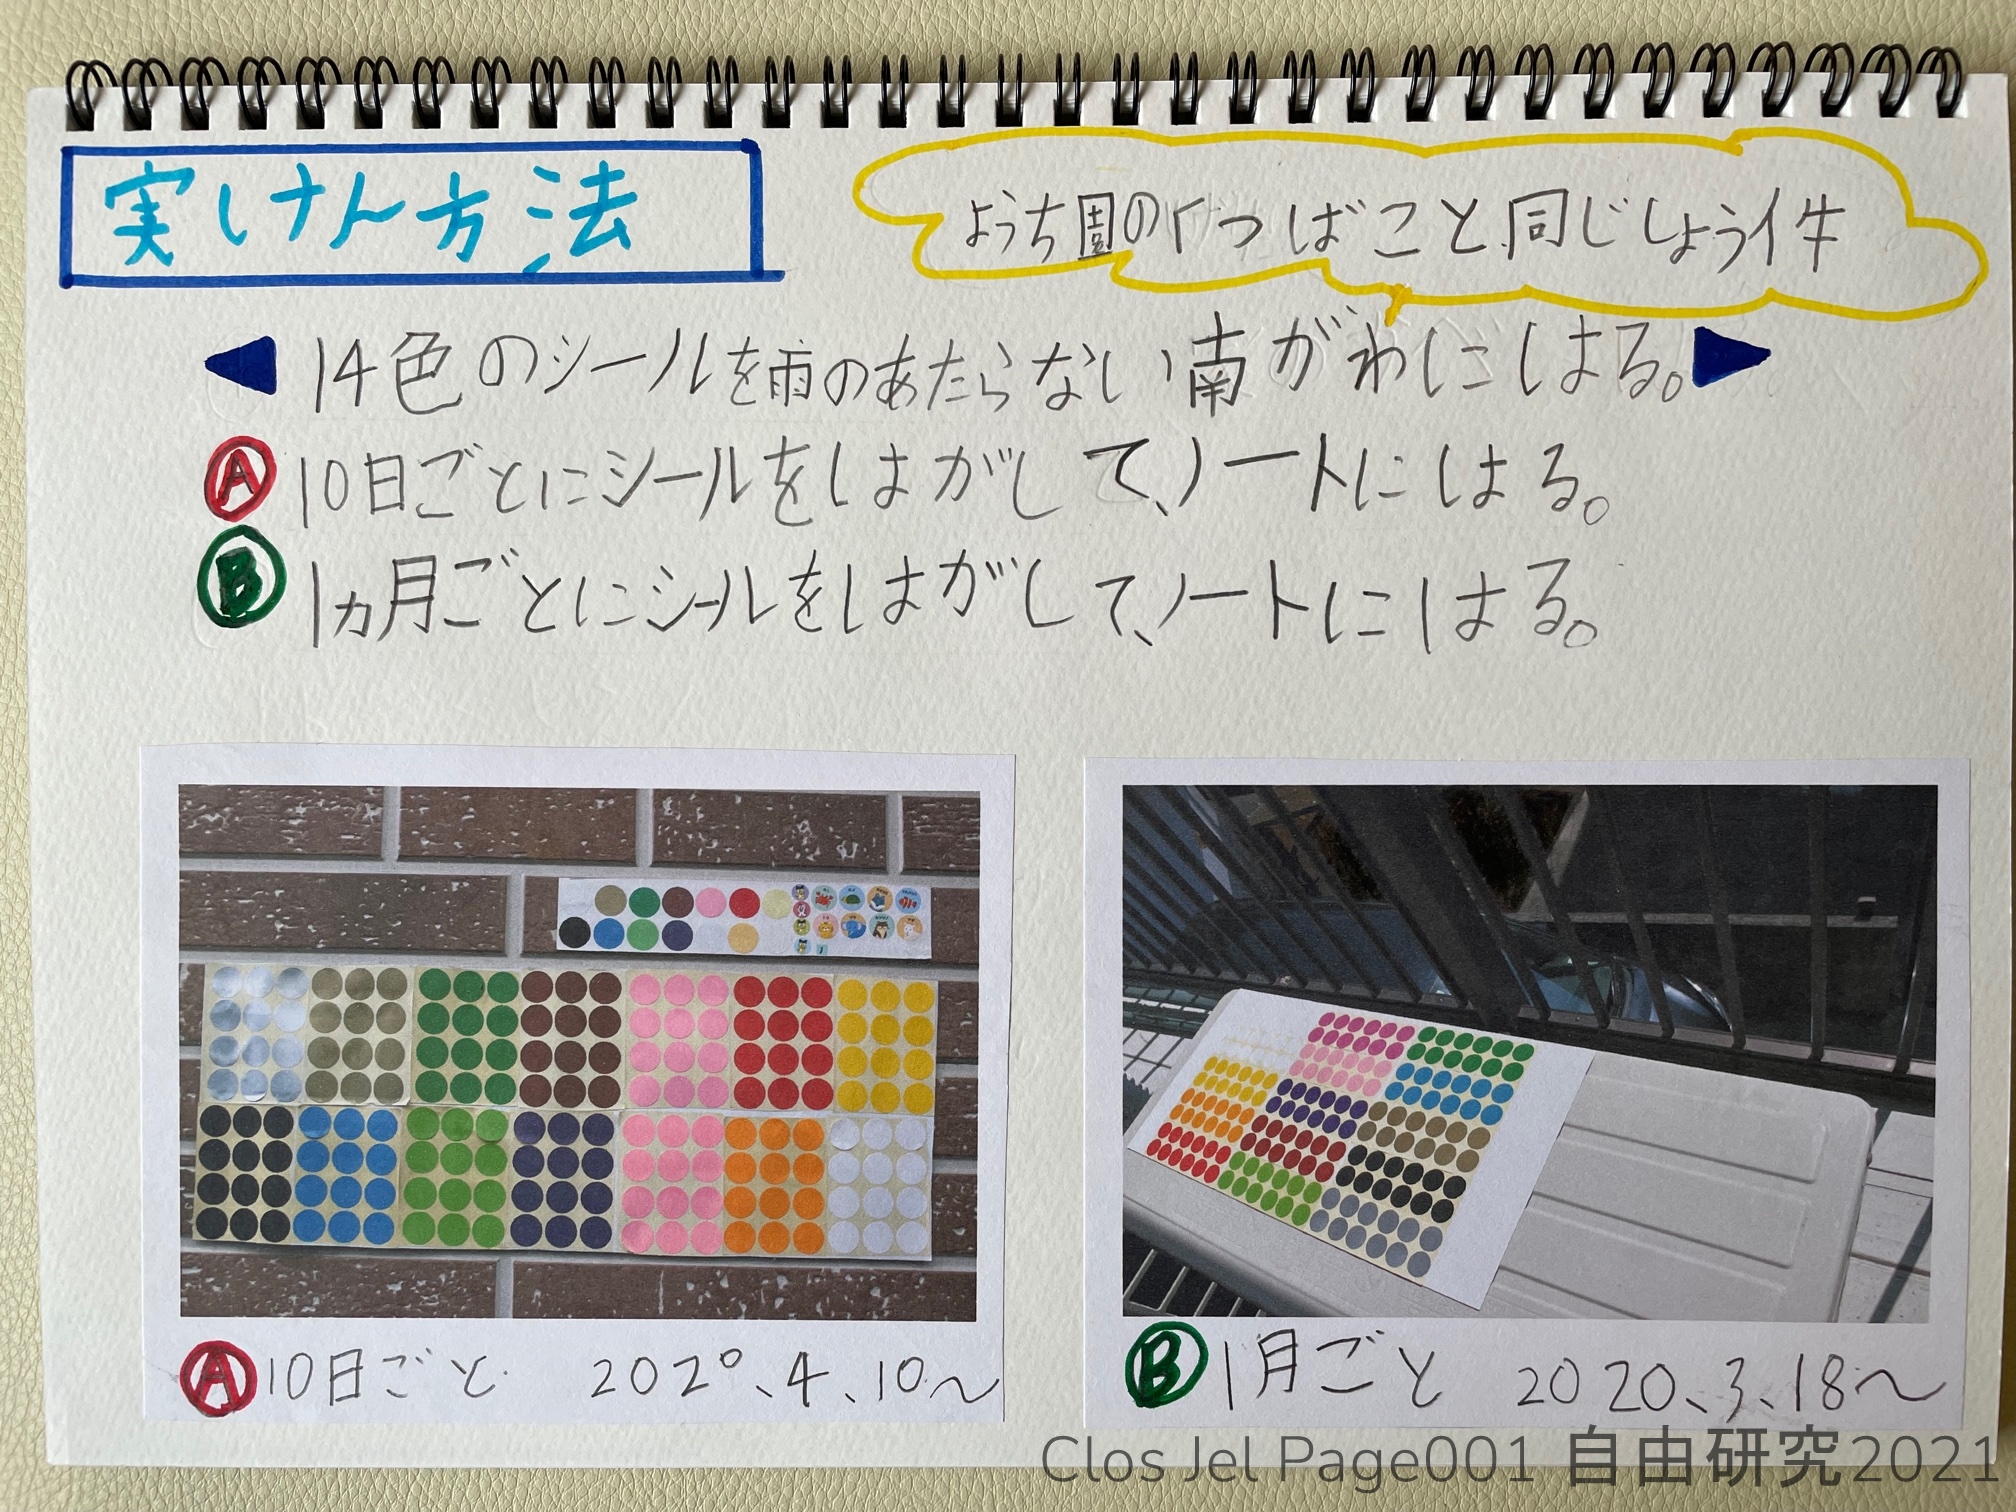 実けん方法
ようち園のくつばこと同じしょう件
14色のシールを雨のあたらない南がわにはる。
A 10日ごとにシールをはがして、ノートにはる。
B 1ヵ月ごとにシールをはがして、ノートにはる。
A 10日ごと 2020、4、10〜
B 1月ごと 2020、3、18〜
Clos Jel Page001 自由研究2021